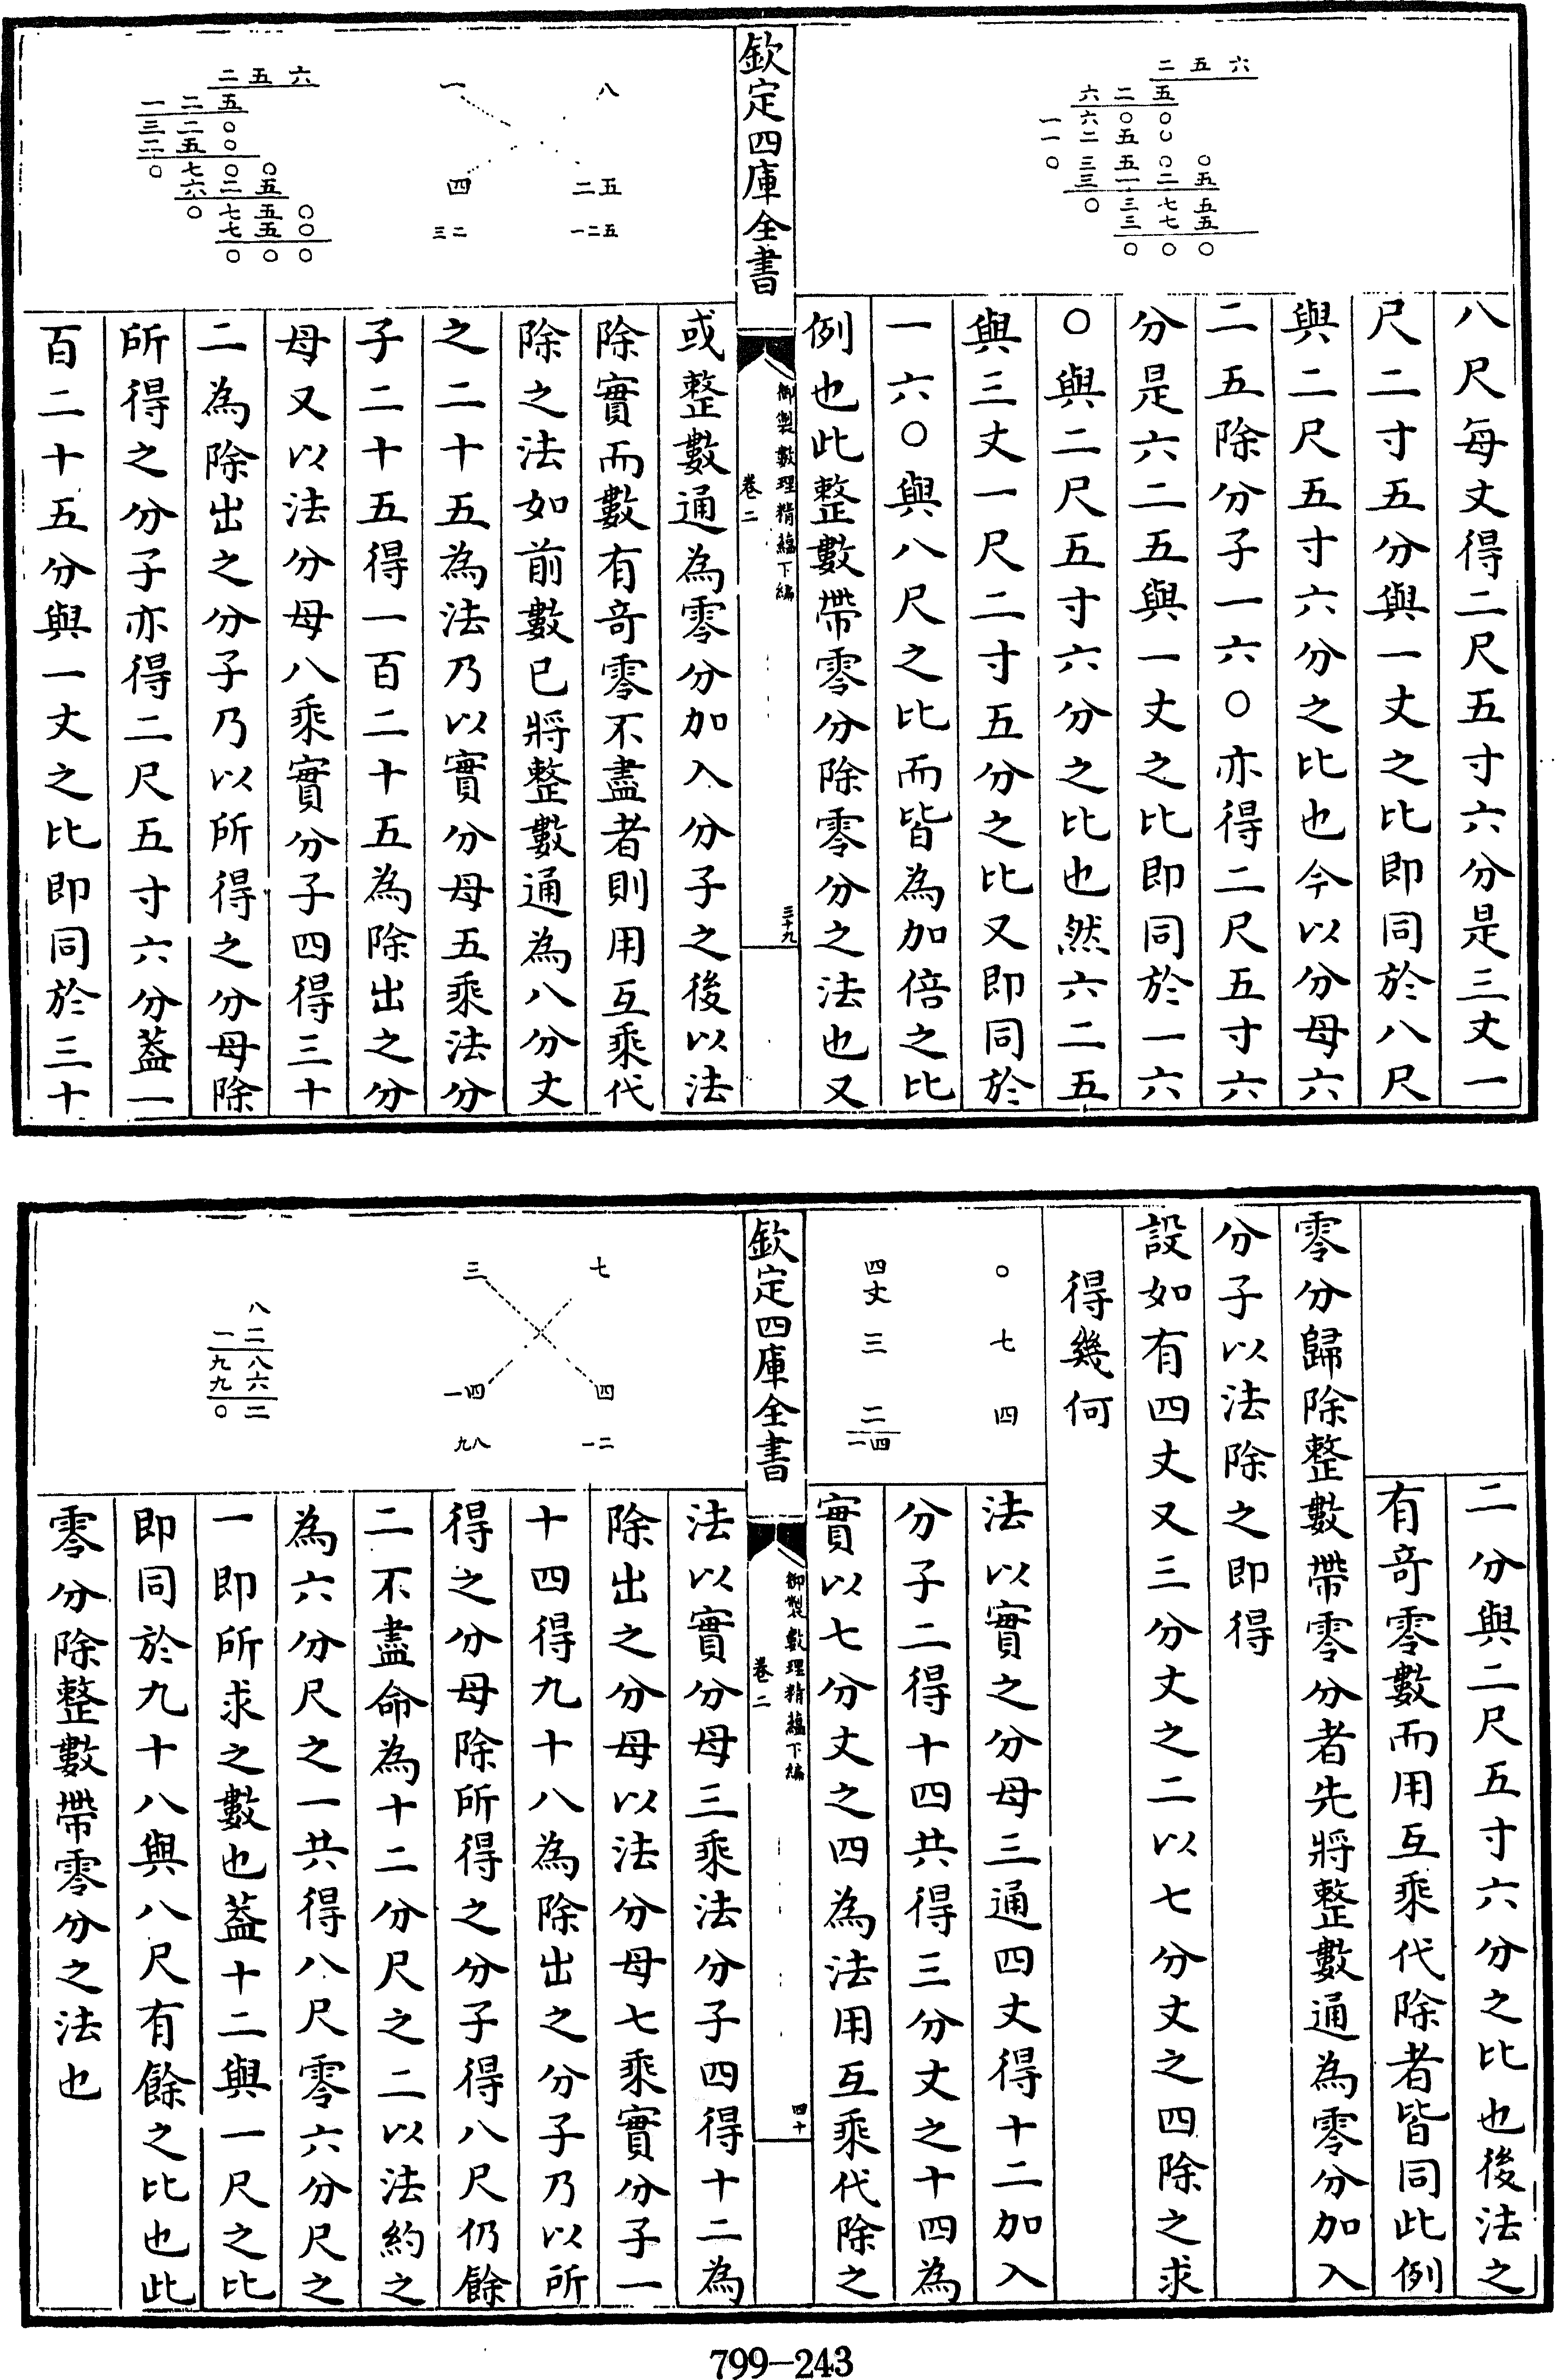 二五六
六二五
六〇〇
一二五〇
一五五〇〇
〇三一二五
〇三七五
三七五
〇〇〇
八尺每丈得二尺五寸六分是三丈一
尺二寸五分與一丈之比即同於八尺
與二尺五寸六分之比也今以分母六
二五除分子一六〇亦得二尺五寸六
分是六二五與一丈之比即同於一六
〇與二尺五寸六分之比也然六二五
與三丈一尺二寸五分之比又即同於
一六〇與八尺之比而皆為加倍之比
例也此整數帶零分除零分之法也又
欽定四庫全書
御製數理精蘊下編
卷二
三十九
八
一
二五
四
一二五
三二
二五六
一二五
三二〇
二五〇
〇七〇〇
六二五
〇七五〇
七五〇
〇〇〇
或整數通為零分加入分子之後以法
除實而數有竒零不盡者則用互乘代
除之法如前數已將整數通為八分丈
之二十五為法乃以實分母五乘法分
子二十五得一百二十五為除出之分
母又以法分母八乘實分子四得三十
二為除出之分子乃以所得之分母除
所得之分子亦得二尺五寸六分葢一
百二十五分與一丈之比即同於三十
二分與二尺五寸六分之比也後法之
有竒零數而用互乘代除者皆同此例
零分歸除整數帶零分者先將整數通為零分加入
分子以法除之即得
設如有四丈又三分丈之二以七分丈之四除之求
得幾何
〇
七
四
四丈
三
二
一四
法以實之分母三通四丈得十二加入
分子二得十四共得三分丈之十四為
實以七分丈之四為法用互乘代除之
欽定四庫全書
御製數理精蘊下編
卷二
四十
七
三
四
一四
一二
九八
八
一二
九八
九六
〇二
法以實分母三乘法分子四得十二為
除出之分母以法分母七乘實分子一
十四得九十八為除出之分子乃以所
得之分母除所得之分子得八尺仍餘
二不盡命為十二分尺之二以法約之
為六分尺之一共得八尺零六分尺之
一即所求之數也葢十二與一尺之比
即同於九十八與八尺有餘之比也此
零分除整數帶零分之法也
799-243